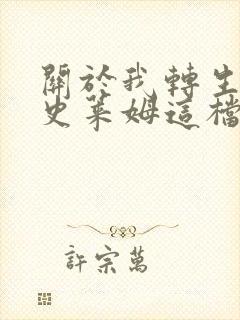 關於我轉生
史萊姆這檔
許宗萬